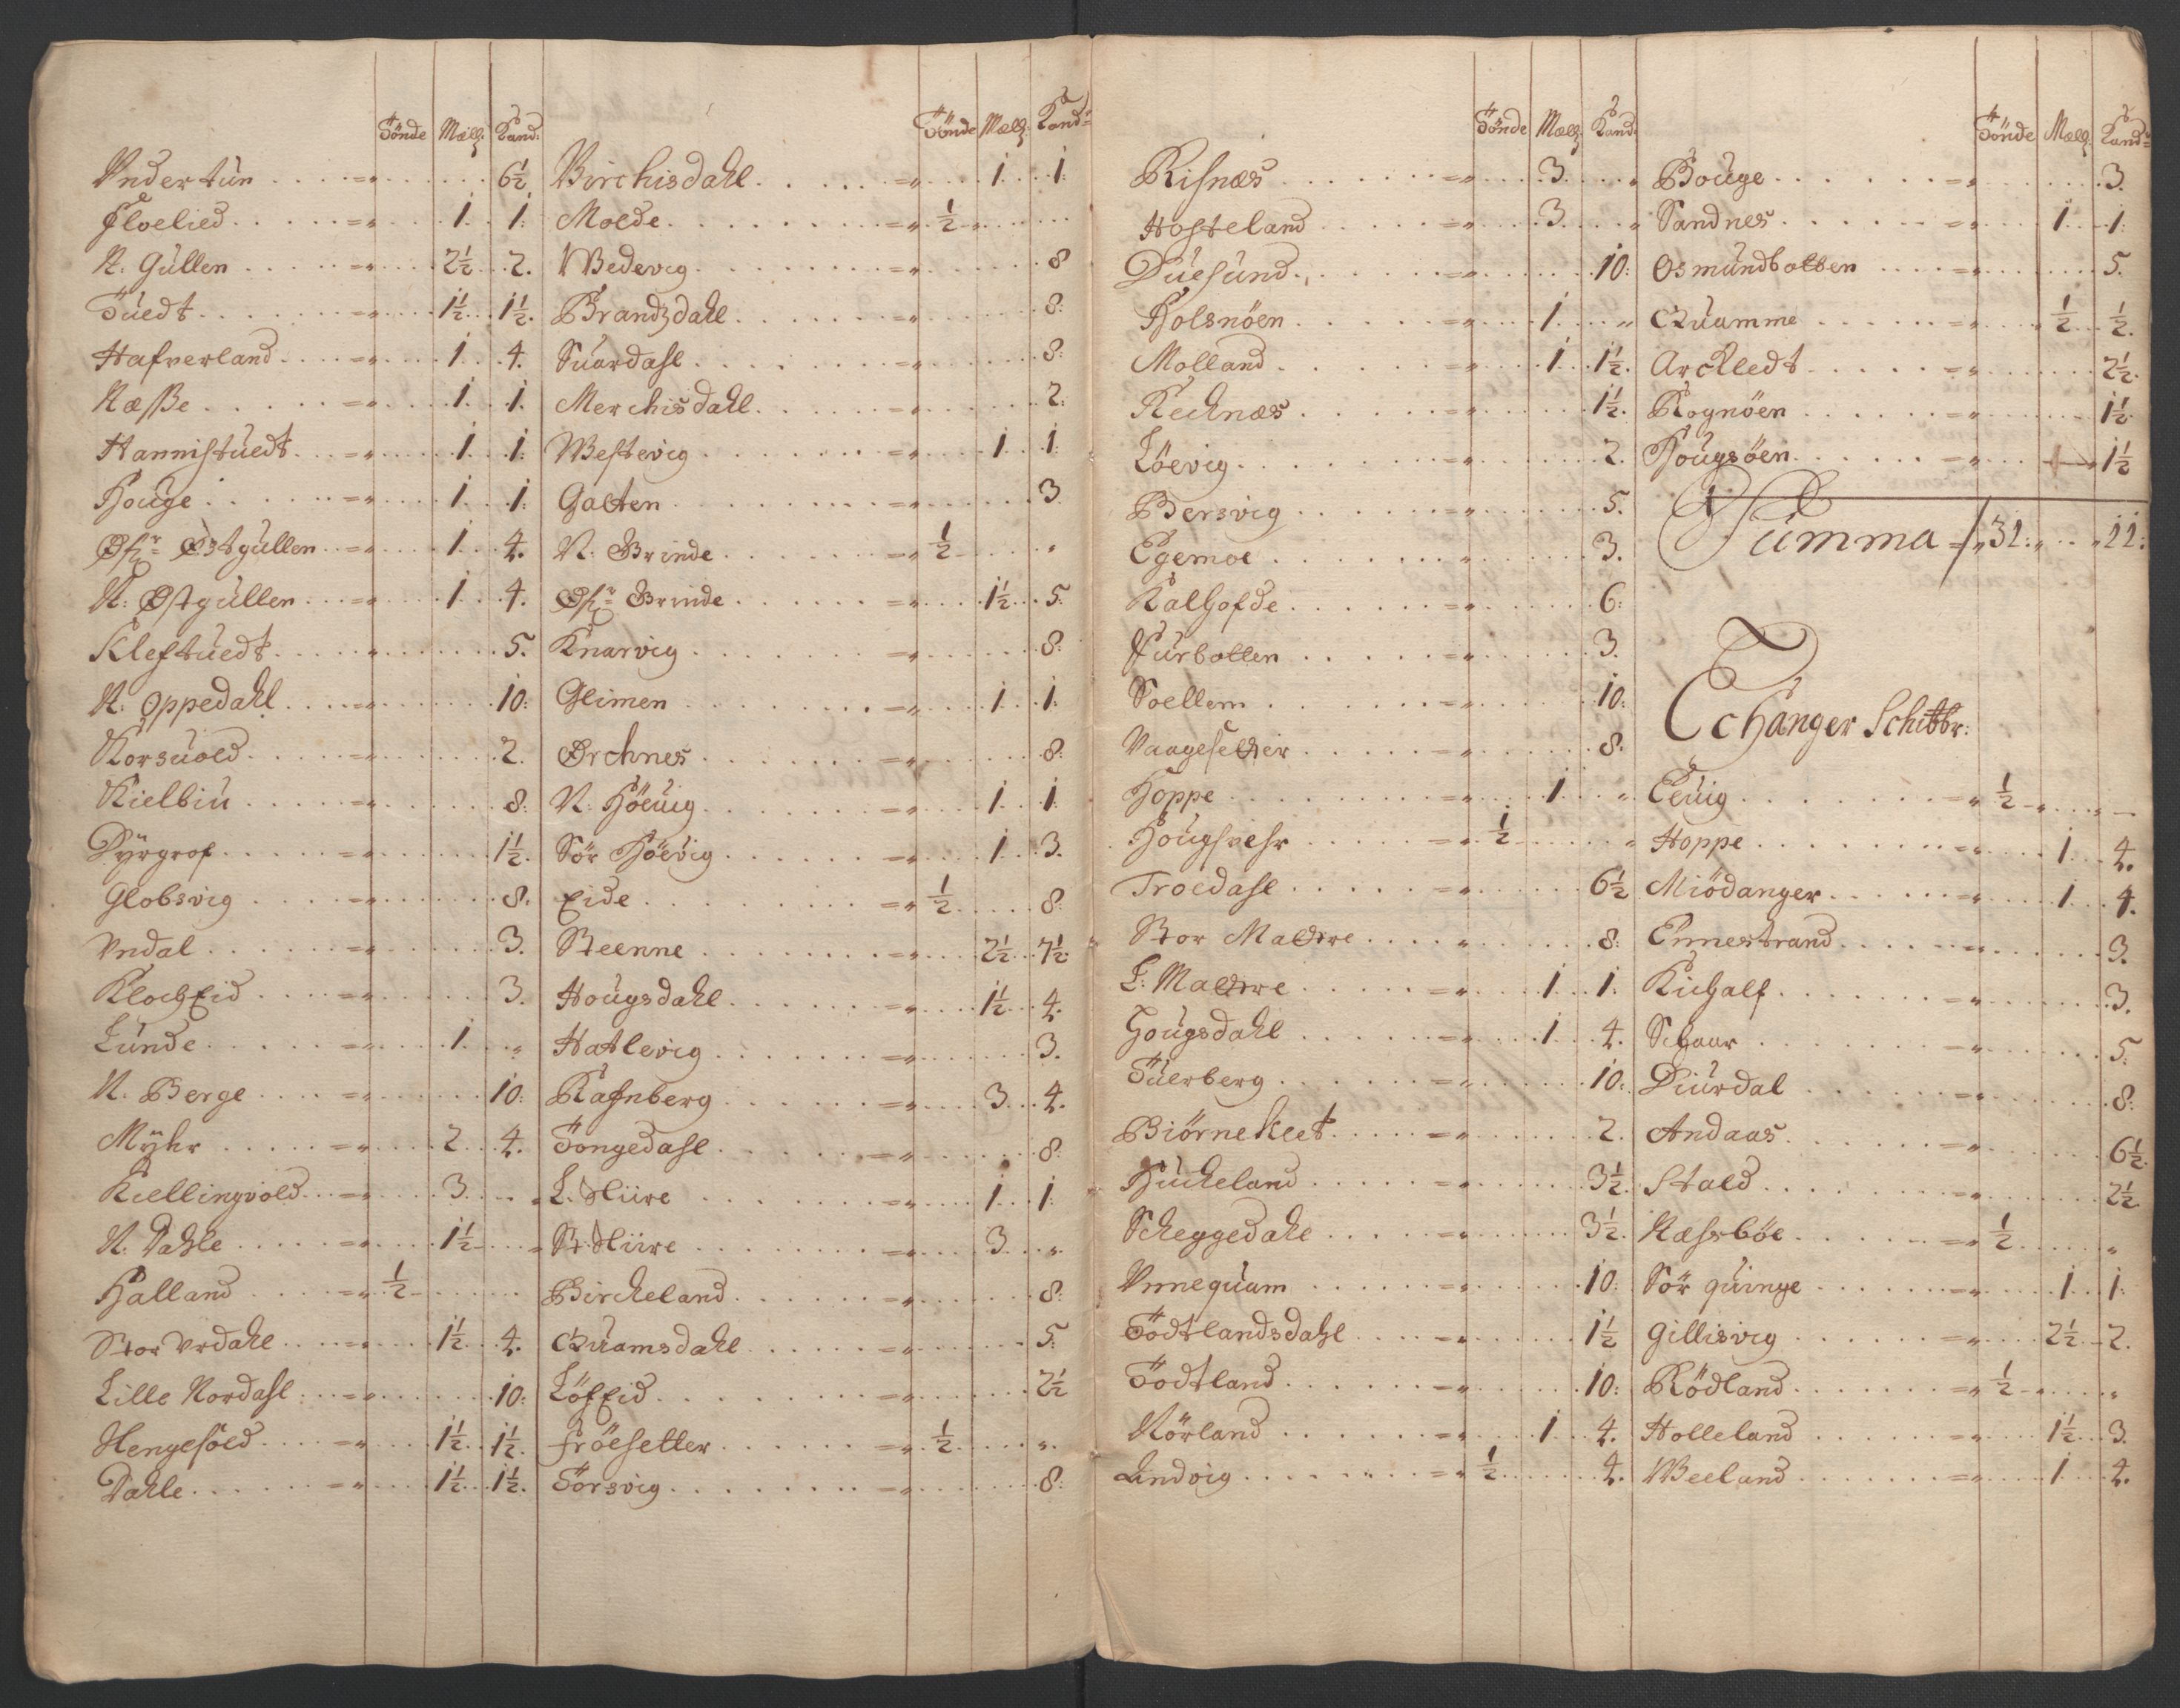 Tönde Mæls: Kand:
Undertün 6½
Floelied 1 1:
N: Güllen 2½ 2.
Tüedt 1½ 1½.
Hafverland 1 4.
Næsse 1 1.
Hannistüedt 1 1:
Houge 1 1:
Øfr Østgüllen 1 4.
N: Østgüllen 1 4.
Kleftüedt 5.
N: Oppedahl 10:
Korsüold 2.
Kielbiü 8:
Dyrgrof 1½.
Globsvig 8.
Undal 3.
KlochEid 3.
Lünde 1 "
N. Berge 10:
Myhr 2 4.
Kiellingvold 3 "
N. Dahle 1½ "
Halland ½
Stor Urdahl 1½ 4.
Lille Nordahl 10:
Hengesöld 1½ 1½.
Dahle 1½ 1½.
Tönde Mæls: Kand:
Birchisdahl 1 1:
Molde ½
Wedevig 8
Brandzdahl 8:
Süardahl 8:
Merchisdahl 2:
Westevig 1 1:
Galten 3
N: Brinde ½ "
Øfr Brinde 1½ 5.
Knarvig 8:
Glimen 1 1:
Ørchnes 8:
N: Höeüig 1 1:
Sör Höevig 1 3.
Eide ½ 8:
Steenne 2½ 7½.
Hougsdahl 1½ 4.
Hatlevig 3.
Rafnberg 3 4.
Tongedahl 8:
L. Hiire 1 1:
St. Hiire 3 "
Bircheland 8:
Qüamsdahl 5:
LöfEid 2½
Fröesetter ½ "
Torsvig 8:
Tönde Mæls: Kand:
Risnæs 3 "
Hosteland 3 "
Düesünd 10:
Holsnöen 1 "
Molland 1 1½.
Kechnæs 1½.
Löevig 2.
Bersvig 5.
Egemoe 3.
Kalhofde 6:
Fürbotten 3.
Soellem 10:
Vaageselter 8.
Hoppe 1 "
Hougsvehr ½ "
Troedahl 6½
Stor Matre 8:
L: Matre 1 1:
Hougsdahl 1 4.
Tüerberg 10:
Biörneklet 2.
Hücheland 3½.
Scheggedahl 3½.
Unneqüam 10:
Todtlandsdahl 1½
Todtland 10:
Nörland 1 4.
Lindvig ½ 4.
Tönde Mæls: Kand:
Bouge 3.
Sandnes 1 1:
Osmündbotten 5.
Qüamme ½ ½.
Archledt 2½.
Rognöen 1½.
Hougsöen 1½
Summa 31: 11:
Echanger Schibbr:
Eeüig ½ "
Hoppe 1 4.
Miödanger 1 4.
Ennestrand 3.
Kichalf 3.
Schaar 5:
Diürdal 8:
Andaas 6½.
Stald 2½.
Næssböe ½ "
Sör qüinge 1 1:
Gillisvig 2½ 2.
Rödland ½ "
Holleland 1½ 3.
Weeland 1 4.